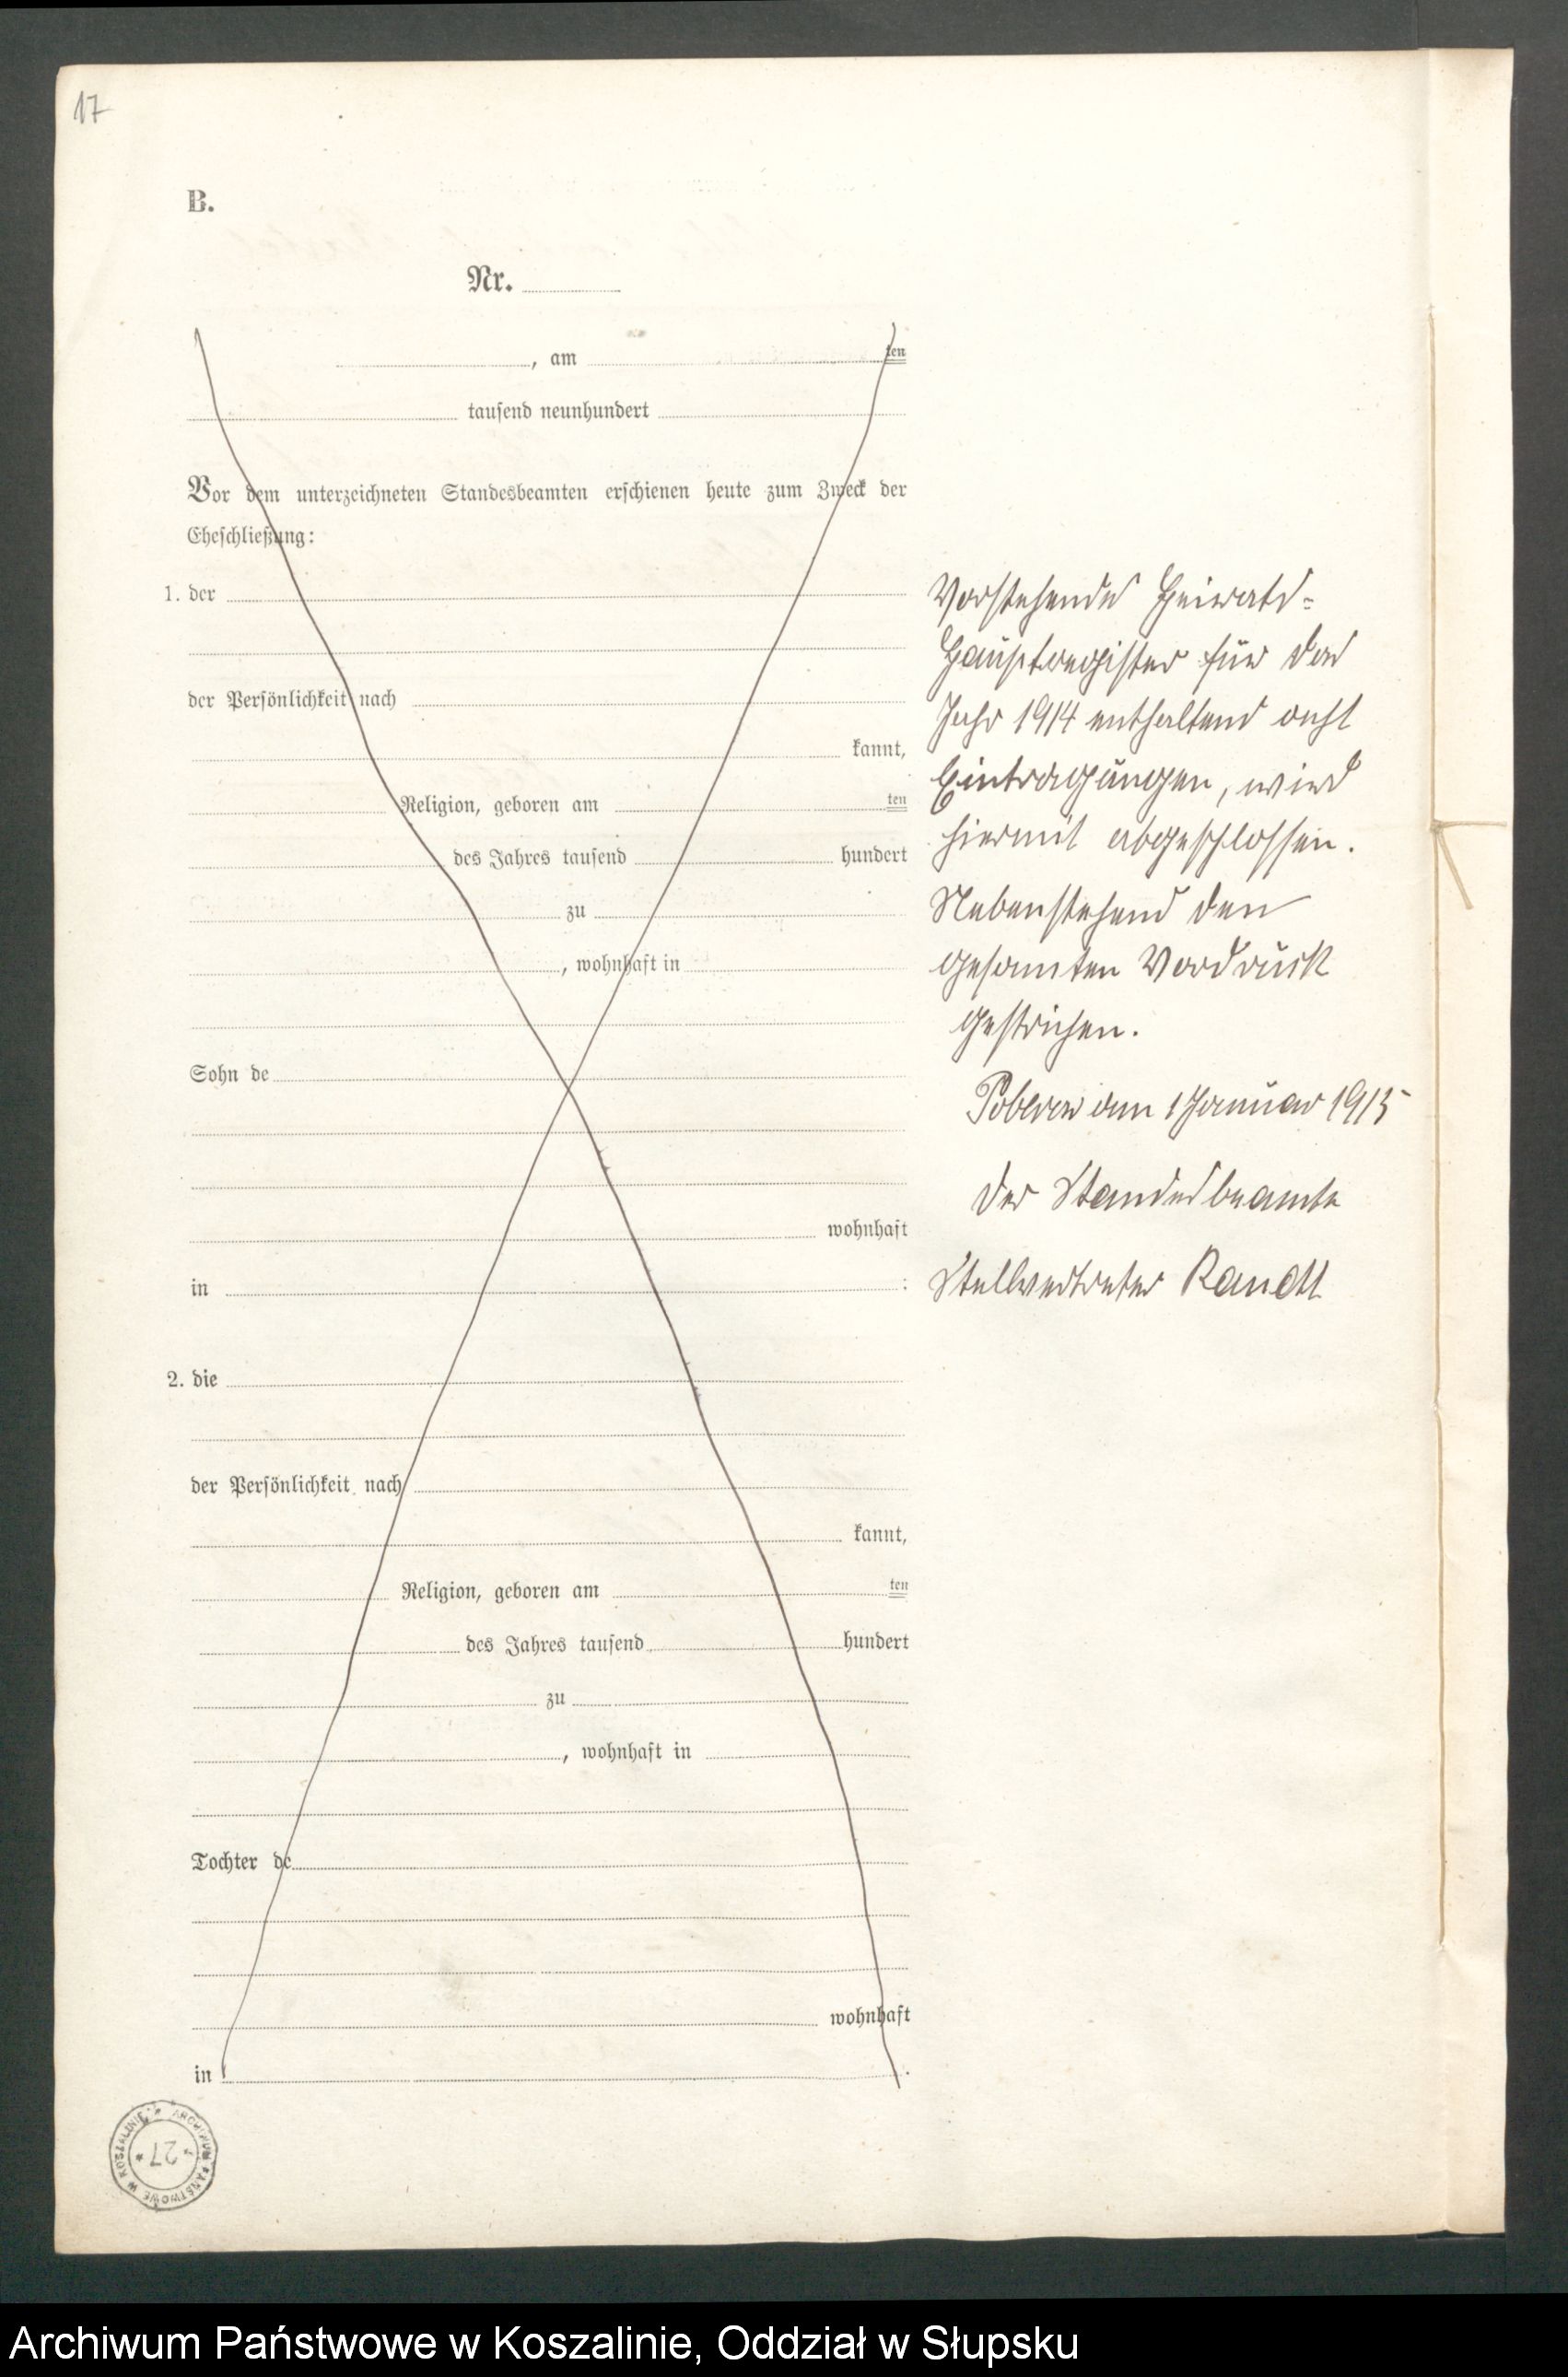 17
B.
Nr.
, am ten
tausend neunhundert
Vor dem unterzeichneten Standesbeamten erschienen heute zum Zweck der
Eheschließung:
1. der
der Persönlichkeit nach
kannt,
Religion, geboren am ten
des Jahres tausend hundert
zu
, wohnhaft in
Sohn de
wohnhaft
in :
2. die
der Persönlichkeit nach
kannt,
Religion, geboren am ten
des Jahres tausend hundert
zu
, wohnhaft in
Tochter de
wohnhaft
in .
Vorstehendes Heirats-
Hauptregister für das
Jahr 1914 enthaltend acht
Eintragungen, wird
hiermit abgeschlossen.
Nebenstehend den
gesamten Vordruck
gestrichen.
am 1 Januar 1915
Der Standesbeamte
Stellvertreter
ARCHIWUM PAŃSTWOWE W KOSZALINIE
* 27 *
Archiwum Państwowe w Koszalinie, Oddział w Słupsku